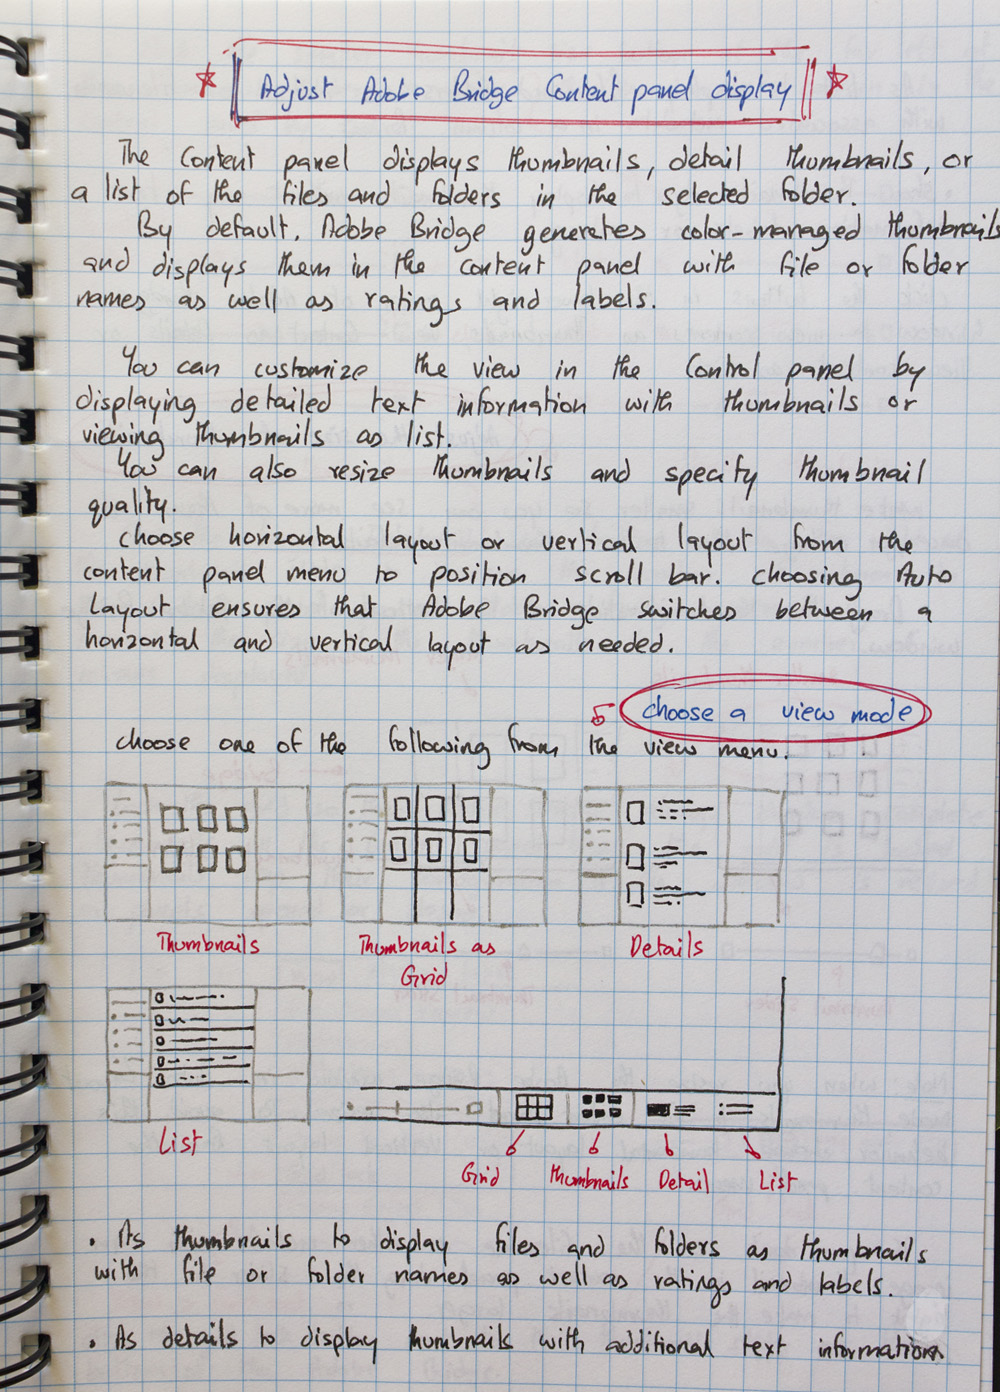 Adjust Adobe Bridge Content panel display
The Content panel displays thumbnails, detail thumbnails, or
a list of the files and folders in the selected folder.
By default, Adobe Bridge generates color-managed thumbnails
and displays them in the content panel with file or folder
names as well as ratings and labels.
You can customize the view in the Control panel by
displaying detailed text information with thumbnails or
viewing thumbnails as list.
You can also resize thumbnails and specify thumbnail
quality.
choose horizontal layout or vertical layout from the
content panel menu to position scroll bar. choosing Auto
Layout ensures that Adobe Bridge switches between a
horizontal and vertical layout as needed.
choose a view mode
choose one of the following from the view menu.
Thumbnails
Thumbnails as
Grid
Details
List
Grid
thumbnails
Detail
List
. As thumbnails to display files and folders as thumbnails
with file or folder names as well as ratings and labels.
. As details to display thumbnails with additional text information